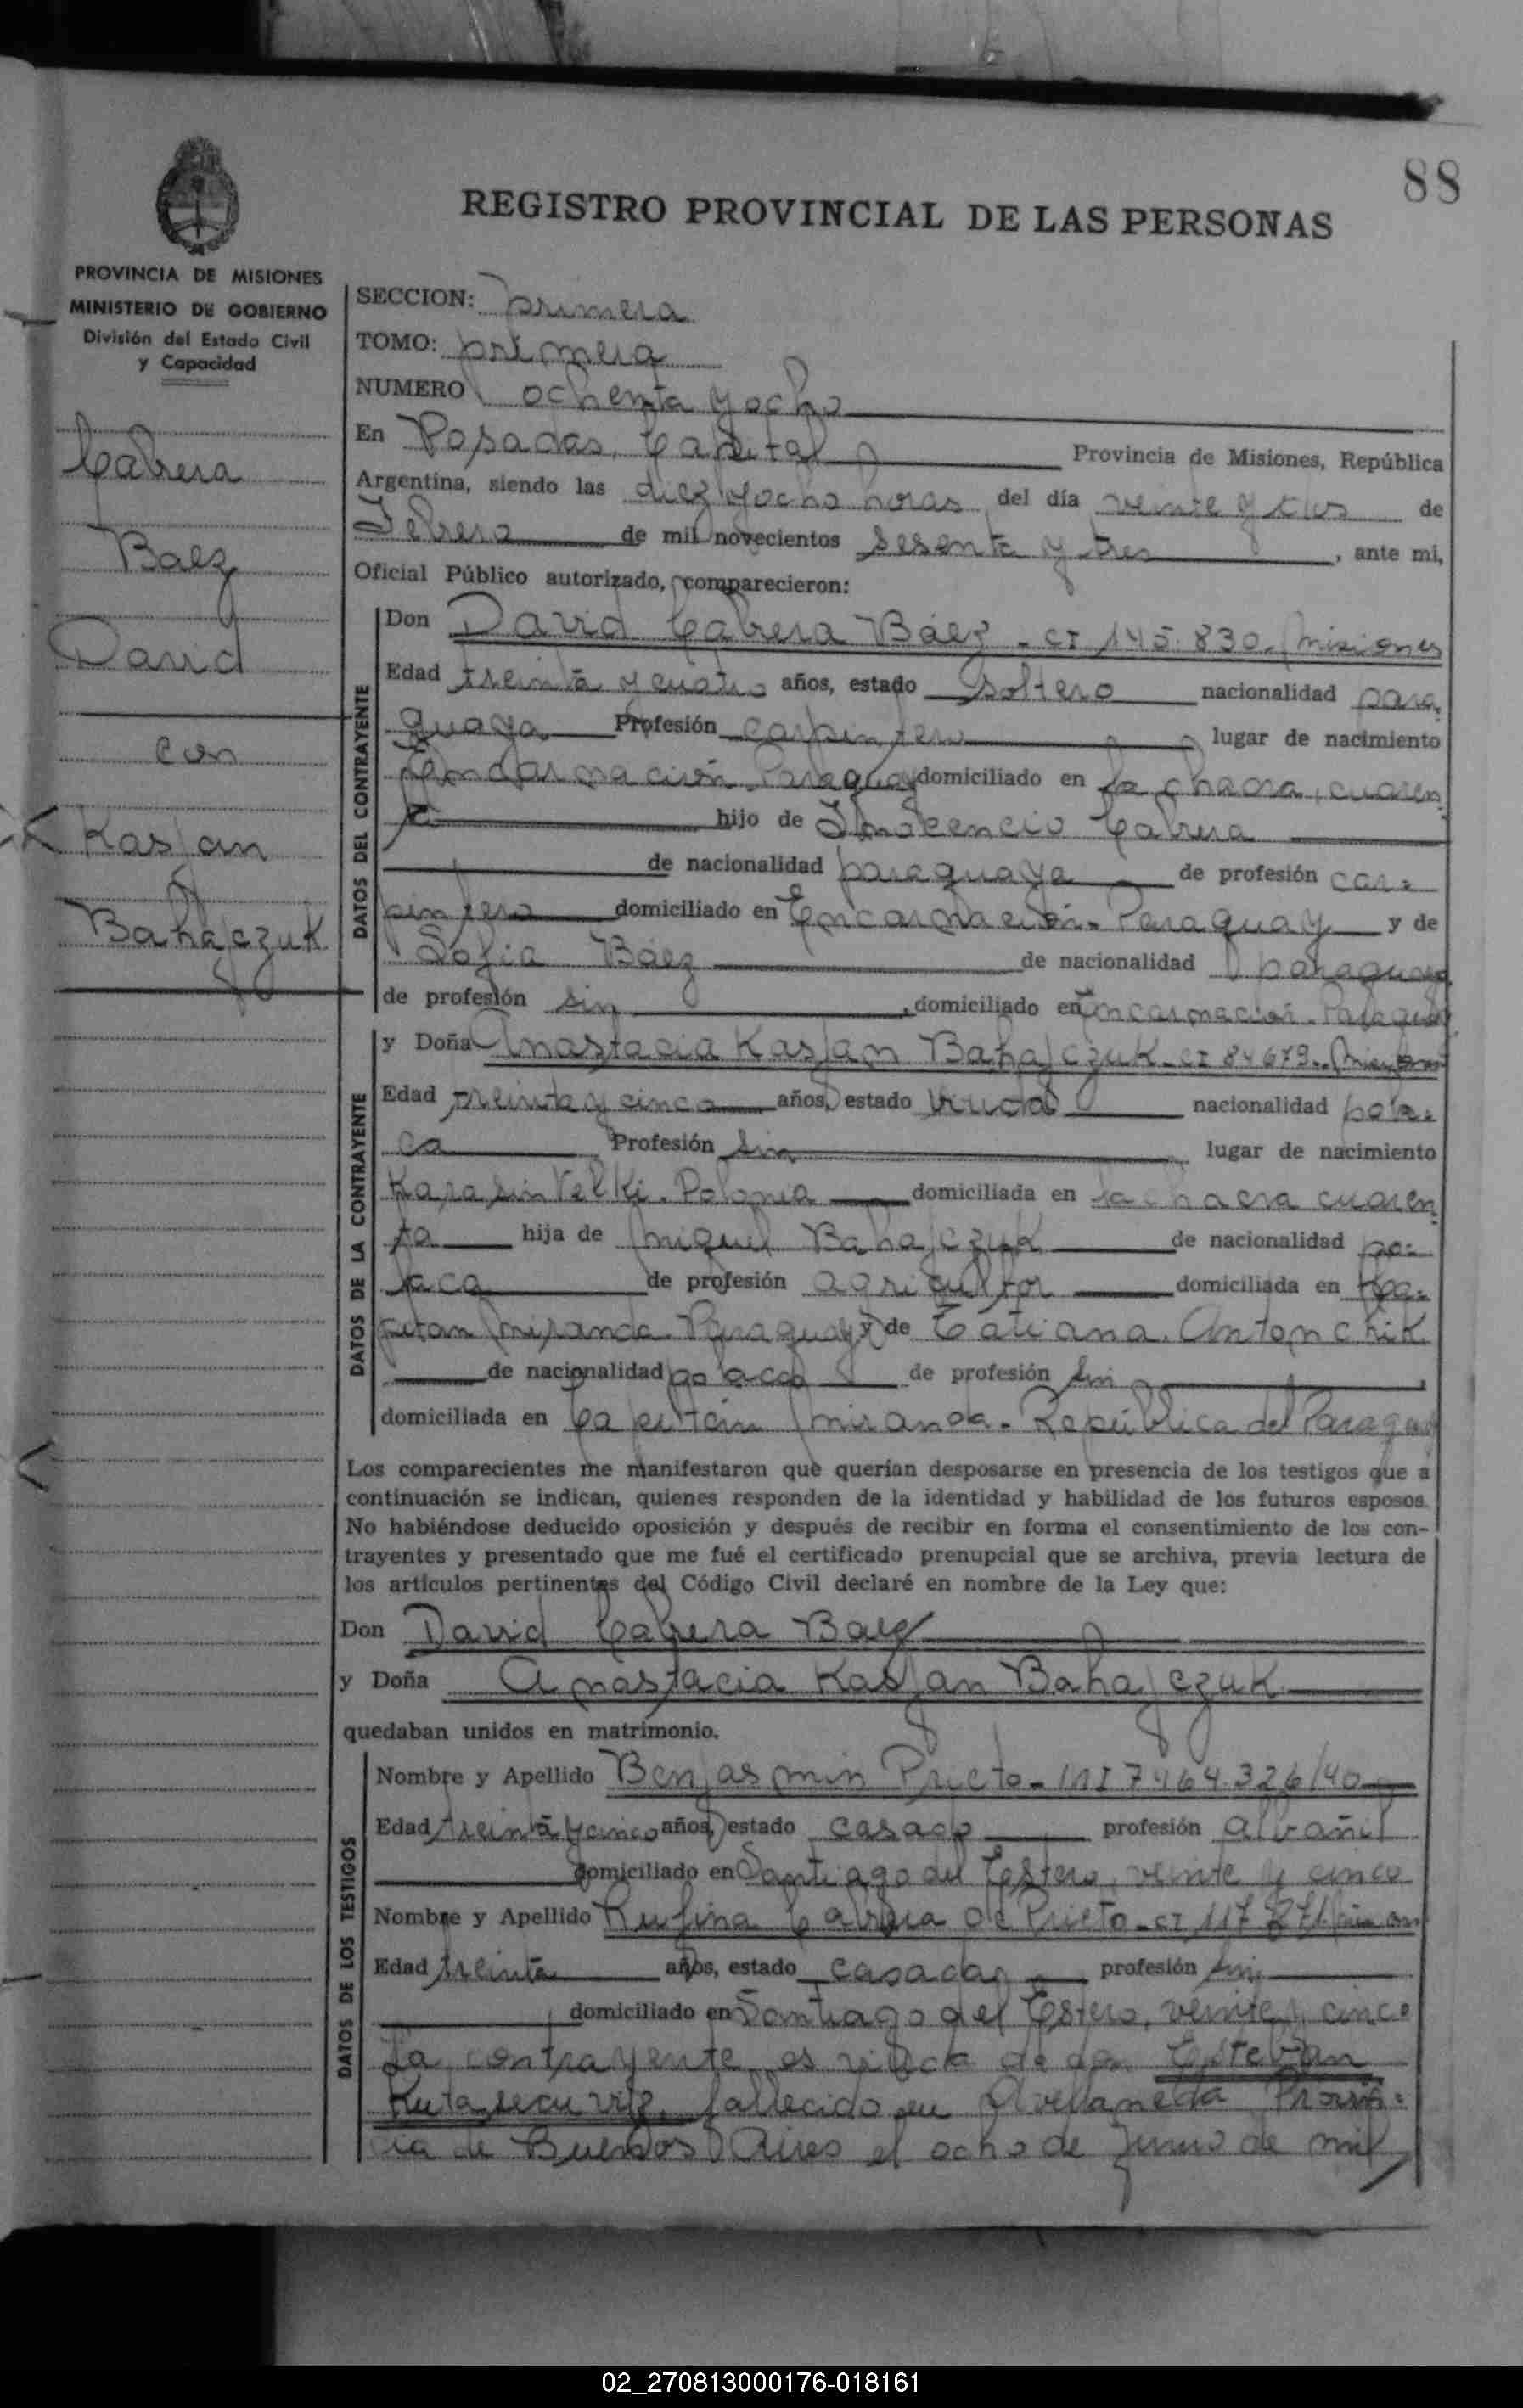 88
REGISTRO PROVINCIAL DE LAS PERSONAS
PROVINCIA DE MISIONES
MINISTERIO DE GOBIERNO
División del Estado Civil
y Capacidad
Cabrera
Baez
David
con
Kasjan
Bahajczuk
SECCION: primera
TOMO: primera
NUMERO ochenta y ocho
En Posadas, Capital Provincia de Misiones, República
Argentina, siendo las diez y ocho horas del día veinte y tres de
Febrero de mil novecientos sesenta y tres, ante mi,
Oficial Público autorizado, comparecieron:
DATOS DEL CONTRAYENTE
Don David Cabrera Báez - CI 145.830. Misiones
Edad treinta y cuatro años, estado soltero nacionalidad para
guaya Profesión carpintero lugar de nacimiento
Encarnación. Paraguay domiciliado en la chacra, cuaren
ta hijo de Inocencio Cabrera
de nacionalidad paraguaya de profesión car=
pintero domiciliado en Encarnación - Paraguay y de
Sofia Báez de nacionalidad paraguaya
de profesión sin, domiciliado en Encarnación - Paraguay
DATOS DE LA CONTRAYENTE
y Doña Anastacia Kasjan Bahajczuk - CI 84679..
Edad treinta y cinco años, estado viuda nacionalidad pola=
ca Profesión sin lugar de nacimiento
Karasin Velki. Polonia domiciliada en la chacra cuaren
ta hija de Miguel Bahajczuk de nacionalidad po=
laca de profesión agricultor domiciliada en Ca=
pitan Miranda. Paraguay y de Tatiana. Antonchik
de nacionalidad polaca de profesión sin
domiciliada en Capitán Miranda - República del Paraguay
Los comparecientes me manifestaron que querían desposarse en presencia de los testigos que a
continuación se indican, quienes responden de la identidad y habilidad de los futuros esposos.
No habiéndose deducido oposición y después de recibir en forma el consentimiento de los con-
trayentes y presentado que me fué el certificado prenupcial que se archiva, previa lectura de
los artículos pertinentes del Código Civil declaré en nombre de la Ley que:
Don David Cabrera Baez
y Doña Anastacia Kasjan Bahajczuk
quedaban unidos en matrimonio.
DATOS DE LOS TESTIGOS
Nombre y Apellido Benjasmin Prieto - MI 7464.326/40
Edad treinta y cinco años, estado casado profesión albañil
domiciliado en Santiago del Estero, veinte y cinco
Nombre y Apellido Rufina Cabrera de Prieto - CI 117
Edad treinta años, estado casada profesión sin
domiciliado en Santiago del Estero, veinte y cinco
La contrayente es viuda de don Esteban
fallecido en Avellaneda Provin=
cia de Buenos Aires el ocho de junio de mil
02_270813000176-018161